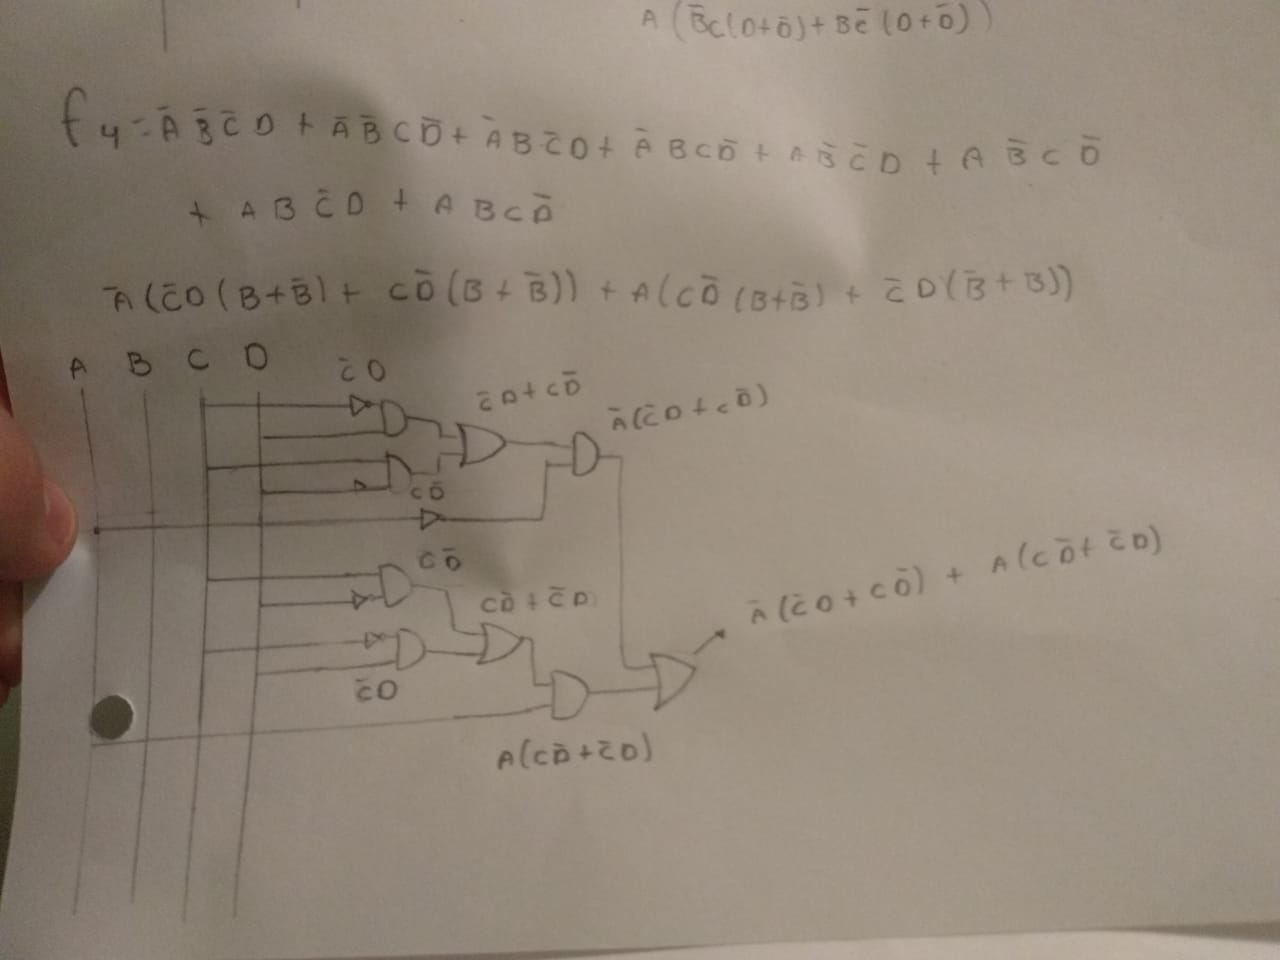 A (B̄C(D+D̄)+BC̄(D+D̄))
f4=ĀB̄C̄D + ĀB̄CD̄ + ĀBC̄D + ĀBCD̄ + AB̄C̄D + AB̄CD̄
+ ABC̄D + ABCD̄
Ā(C̄D(B+B̄)+ CD̄(B+B̄)) + A(CD̄(B+B̄) + C̄D(B̄+B))
A B C D
C̄D
C̄D+CD̄
Ā(C̄D+CD̄)
CD̄
CD̄
CD̄+C̄D
Ā(C̄D+CD̄) + A(CD̄+C̄D)
C̄D
A(CD̄+C̄D)